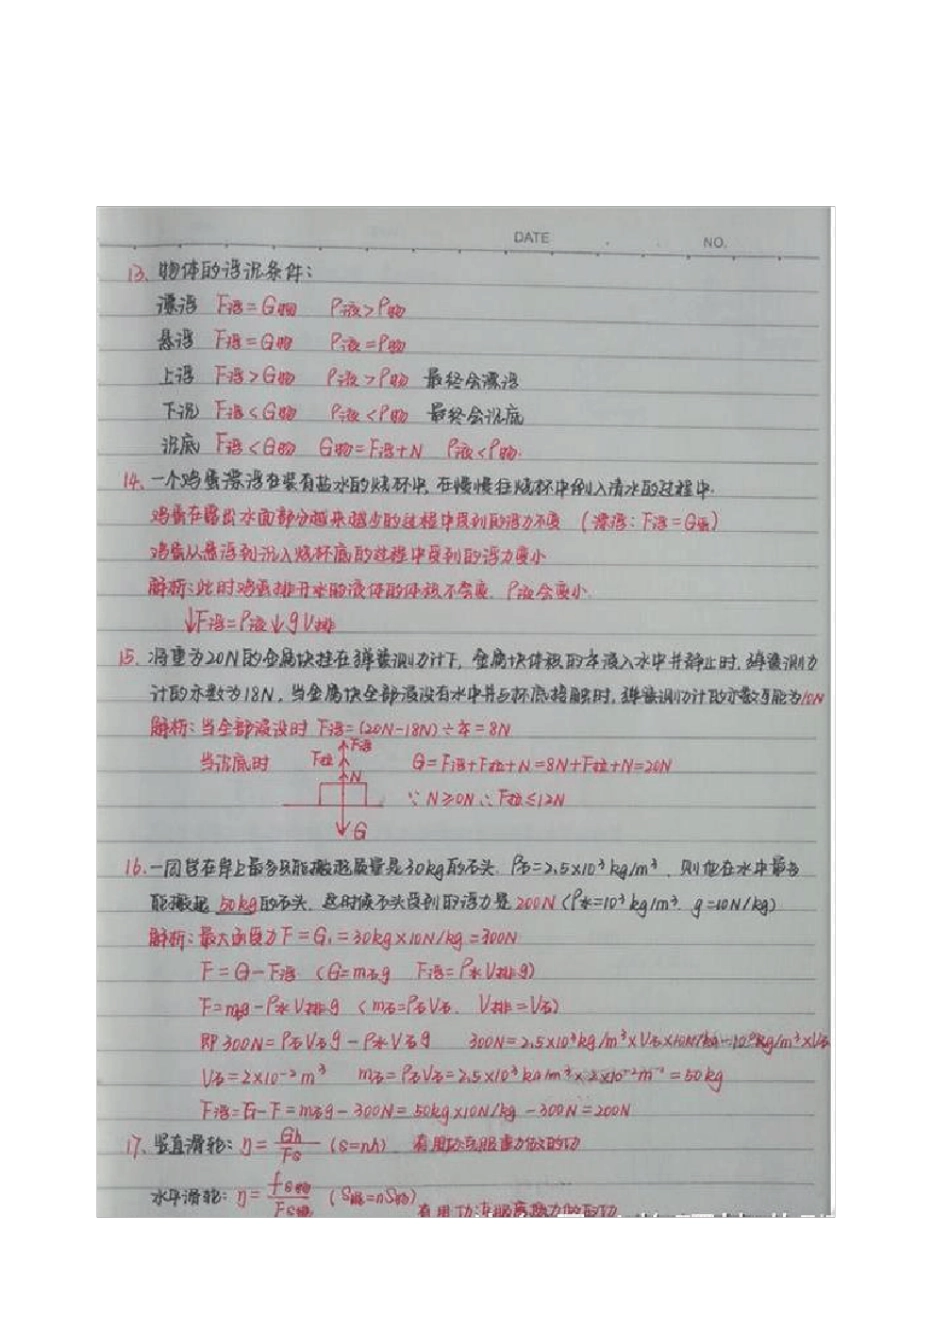 DATE
NO.
13、物体的浮沉条件：
漂浮 F浮=G物 ρ液>ρ物
悬浮 F浮=G物 ρ液=ρ物
上浮 F浮>G物 ρ液>ρ物 最终会漂浮
下沉 F浮<G物 ρ液<ρ物 最终会沉底
沉底 F浮<G物 G物=F浮+N ρ液<ρ物.
14、一个鸡蛋漂浮在装有盐水的烧杯中，在慢慢往烧杯中倒入清水的过程中.
鸡蛋在露出水面部分越来越少的过程中受到的浮力不变 (漂浮：F浮=G蛋)
鸡蛋从悬浮到沉入烧杯底的过程中受到的浮力变小
解析：此时鸡蛋排开水的液体的体积不会变，ρ液会变小.
↓F浮=ρ液↓gV排
15、将重为20N的金属块挂在弹簧测力计下，金属块体积的浸入水中并静止时，弹簧测力
计的示数为18N，当金属块全部浸没有水中并与杯底接触时，弹簧测力计的示数可能为10N
解析：当全部浸没时 F浮=(20N-18N)÷=8N
F浮
当沉底时 F拉 G=F浮+F拉+N=8N+F拉+N=20N
N
∵N≥0N ∴F拉≤12N
G
16、一同学在岸上最多只能搬起质量是30kg的石头，ρ石=2.5×10³kg/m³，则他在水中最多
能搬起50kg的石头，这时候石头受到的浮力是200N (ρ水=10³kg/m³，g=10N/kg)
解析：最大的力F=G₁=30kg×10N/kg=300N
F=G-F浮 (G=m石g F浮=ρ水V排g)
F=mg-ρ水V排g (m石=ρ石V石，V排=V石)
即300N=ρ石V石g-ρ水V石g 300N=2.5×10³kg/m³×V石×10N/kg-10³kg/m³×V石
V石=2×10⁻²m³ m石=ρ石V石=2.5×10³kg/m³×2×10⁻²m³=50kg
F浮=G-F=m石g-300N=50kg×10N/kg-300N=200N
17、竖直滑轮：η=Gh/Fs (s=nh) 有用功克服重力做的功
水平滑轮：η=fs物/Fs绳 (s绳=ns物) 有用功克服摩擦力做的功